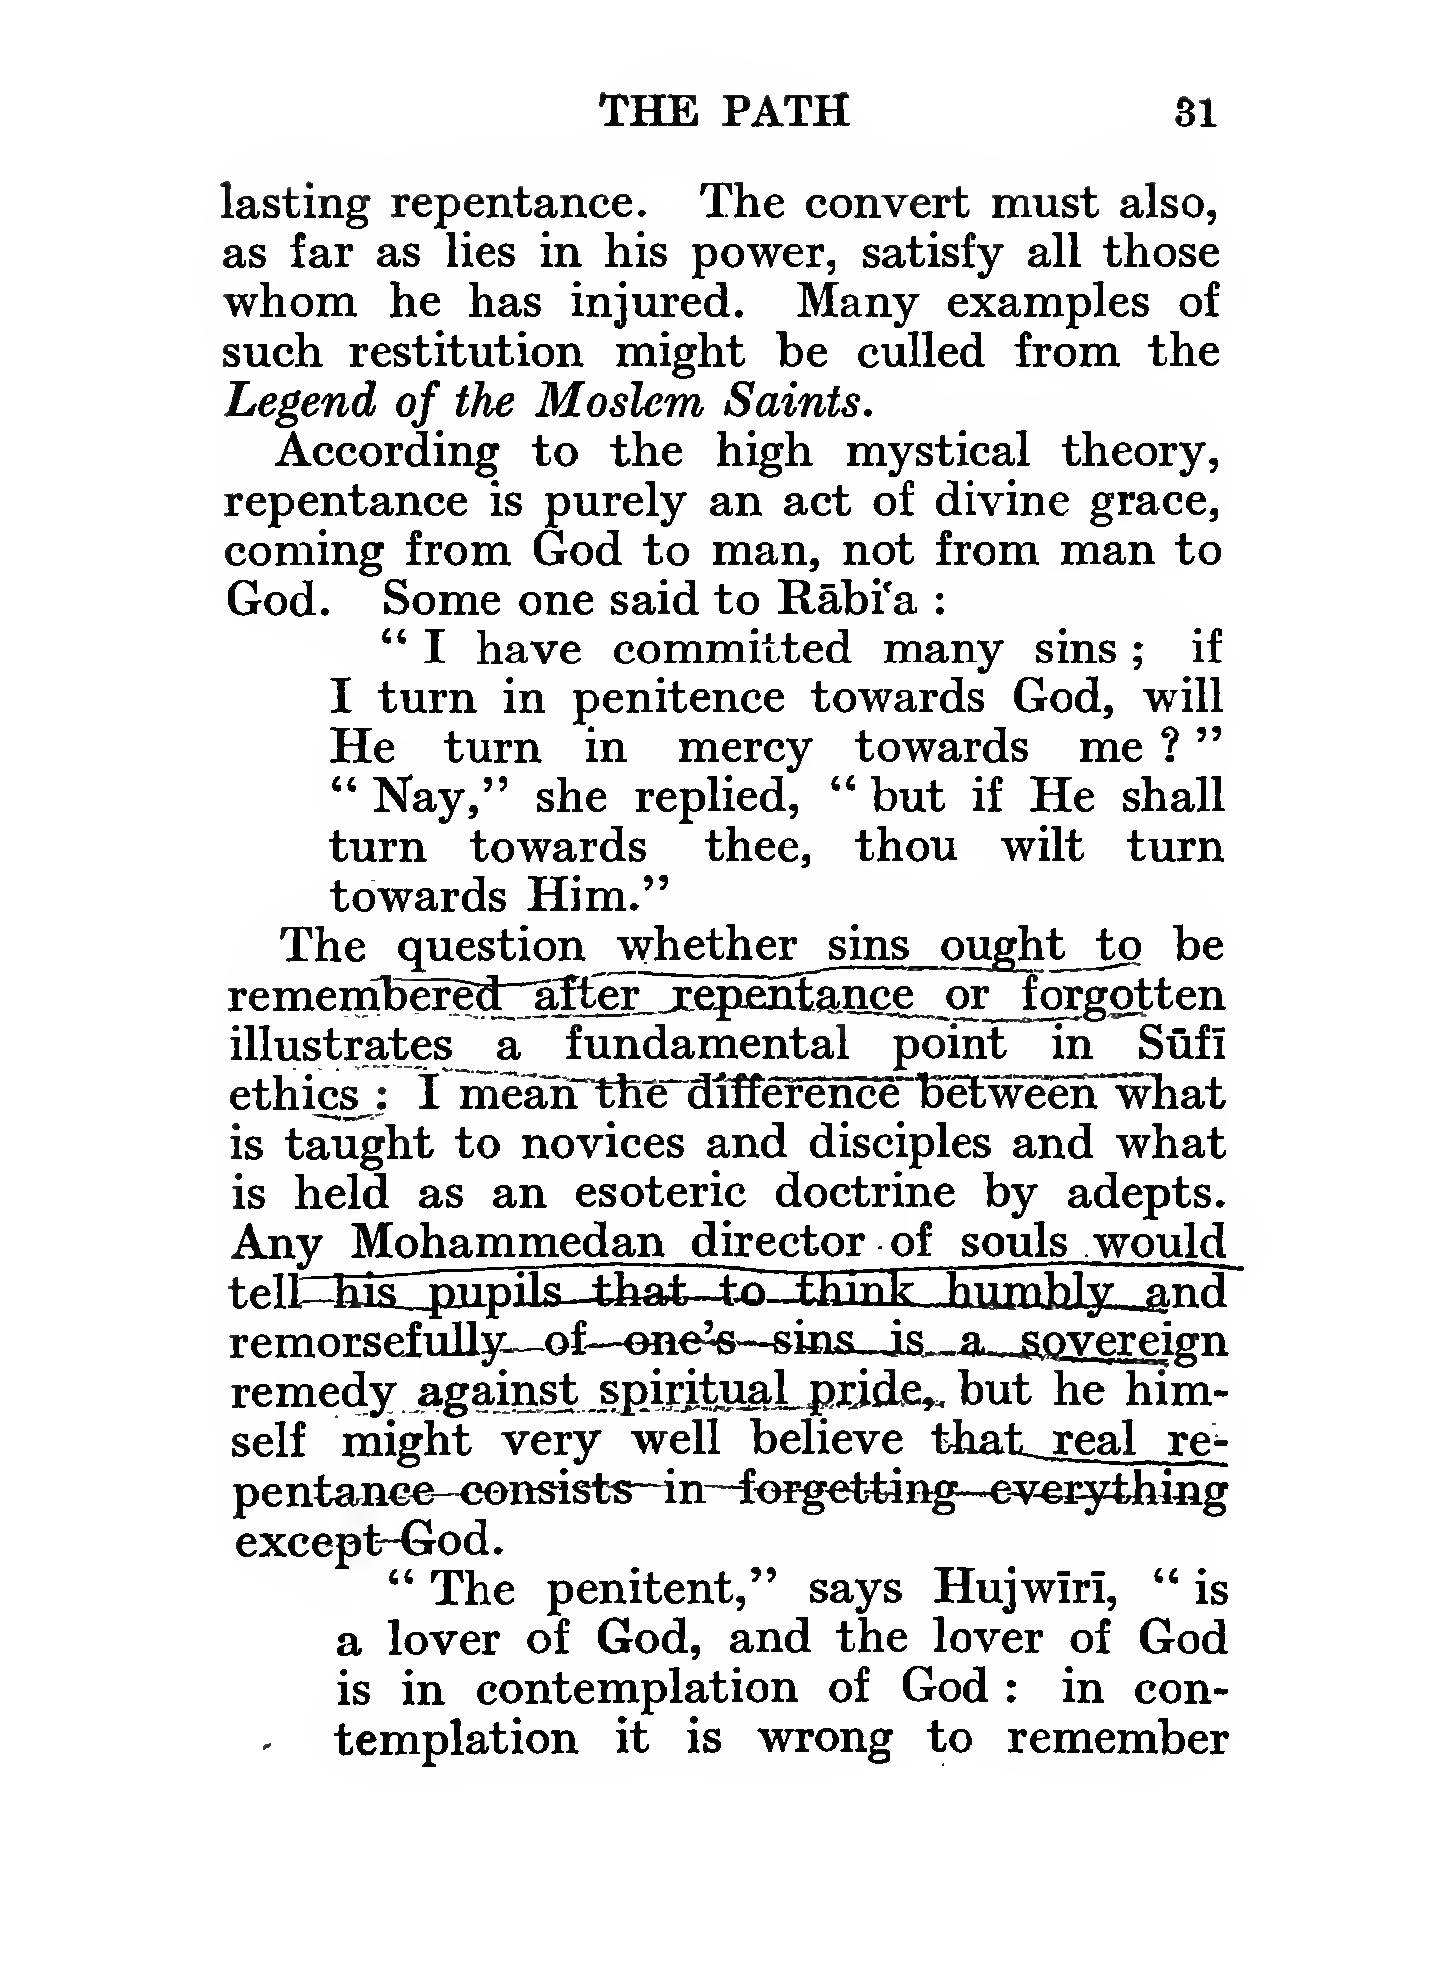 THE PATH 31
lasting repentance. The convert must also,
as far as lies in his power, satisfy all those
whom he has injured. Many examples of
such restitution might be culled from the
Legend of the Moslem Saints.
According to the high mystical theory,
repentance is purely an act of divine grace,
coming from God to man, not from man to
God. Some one said to Rābi‘a :
“ I have committed many sins ; if
I turn in penitence towards God, will
He turn in mercy towards me ? ”
“ Nay,” she replied, “ but if He shall
turn towards thee, thou wilt turn
towards Him.”
The question whether sins ought to be
remembered after repentance or forgotten
illustrates a fundamental point in Sūfī
ethics : I mean the difference between what
is taught to novices and disciples and what
is held as an esoteric doctrine by adepts.
Any Mohammedan director of souls would
tell his pupils that to think humbly and
remorsefully of one’s sins is a sovereign
remedy against spiritual pride, but he him-
self might very well believe that real re-
pentance consists in forgetting everything
except God.
“ The penitent,” says Hujwīrī, “ is
a lover of God, and the lover of God
is in contemplation of God : in con-
templation it is wrong to remember